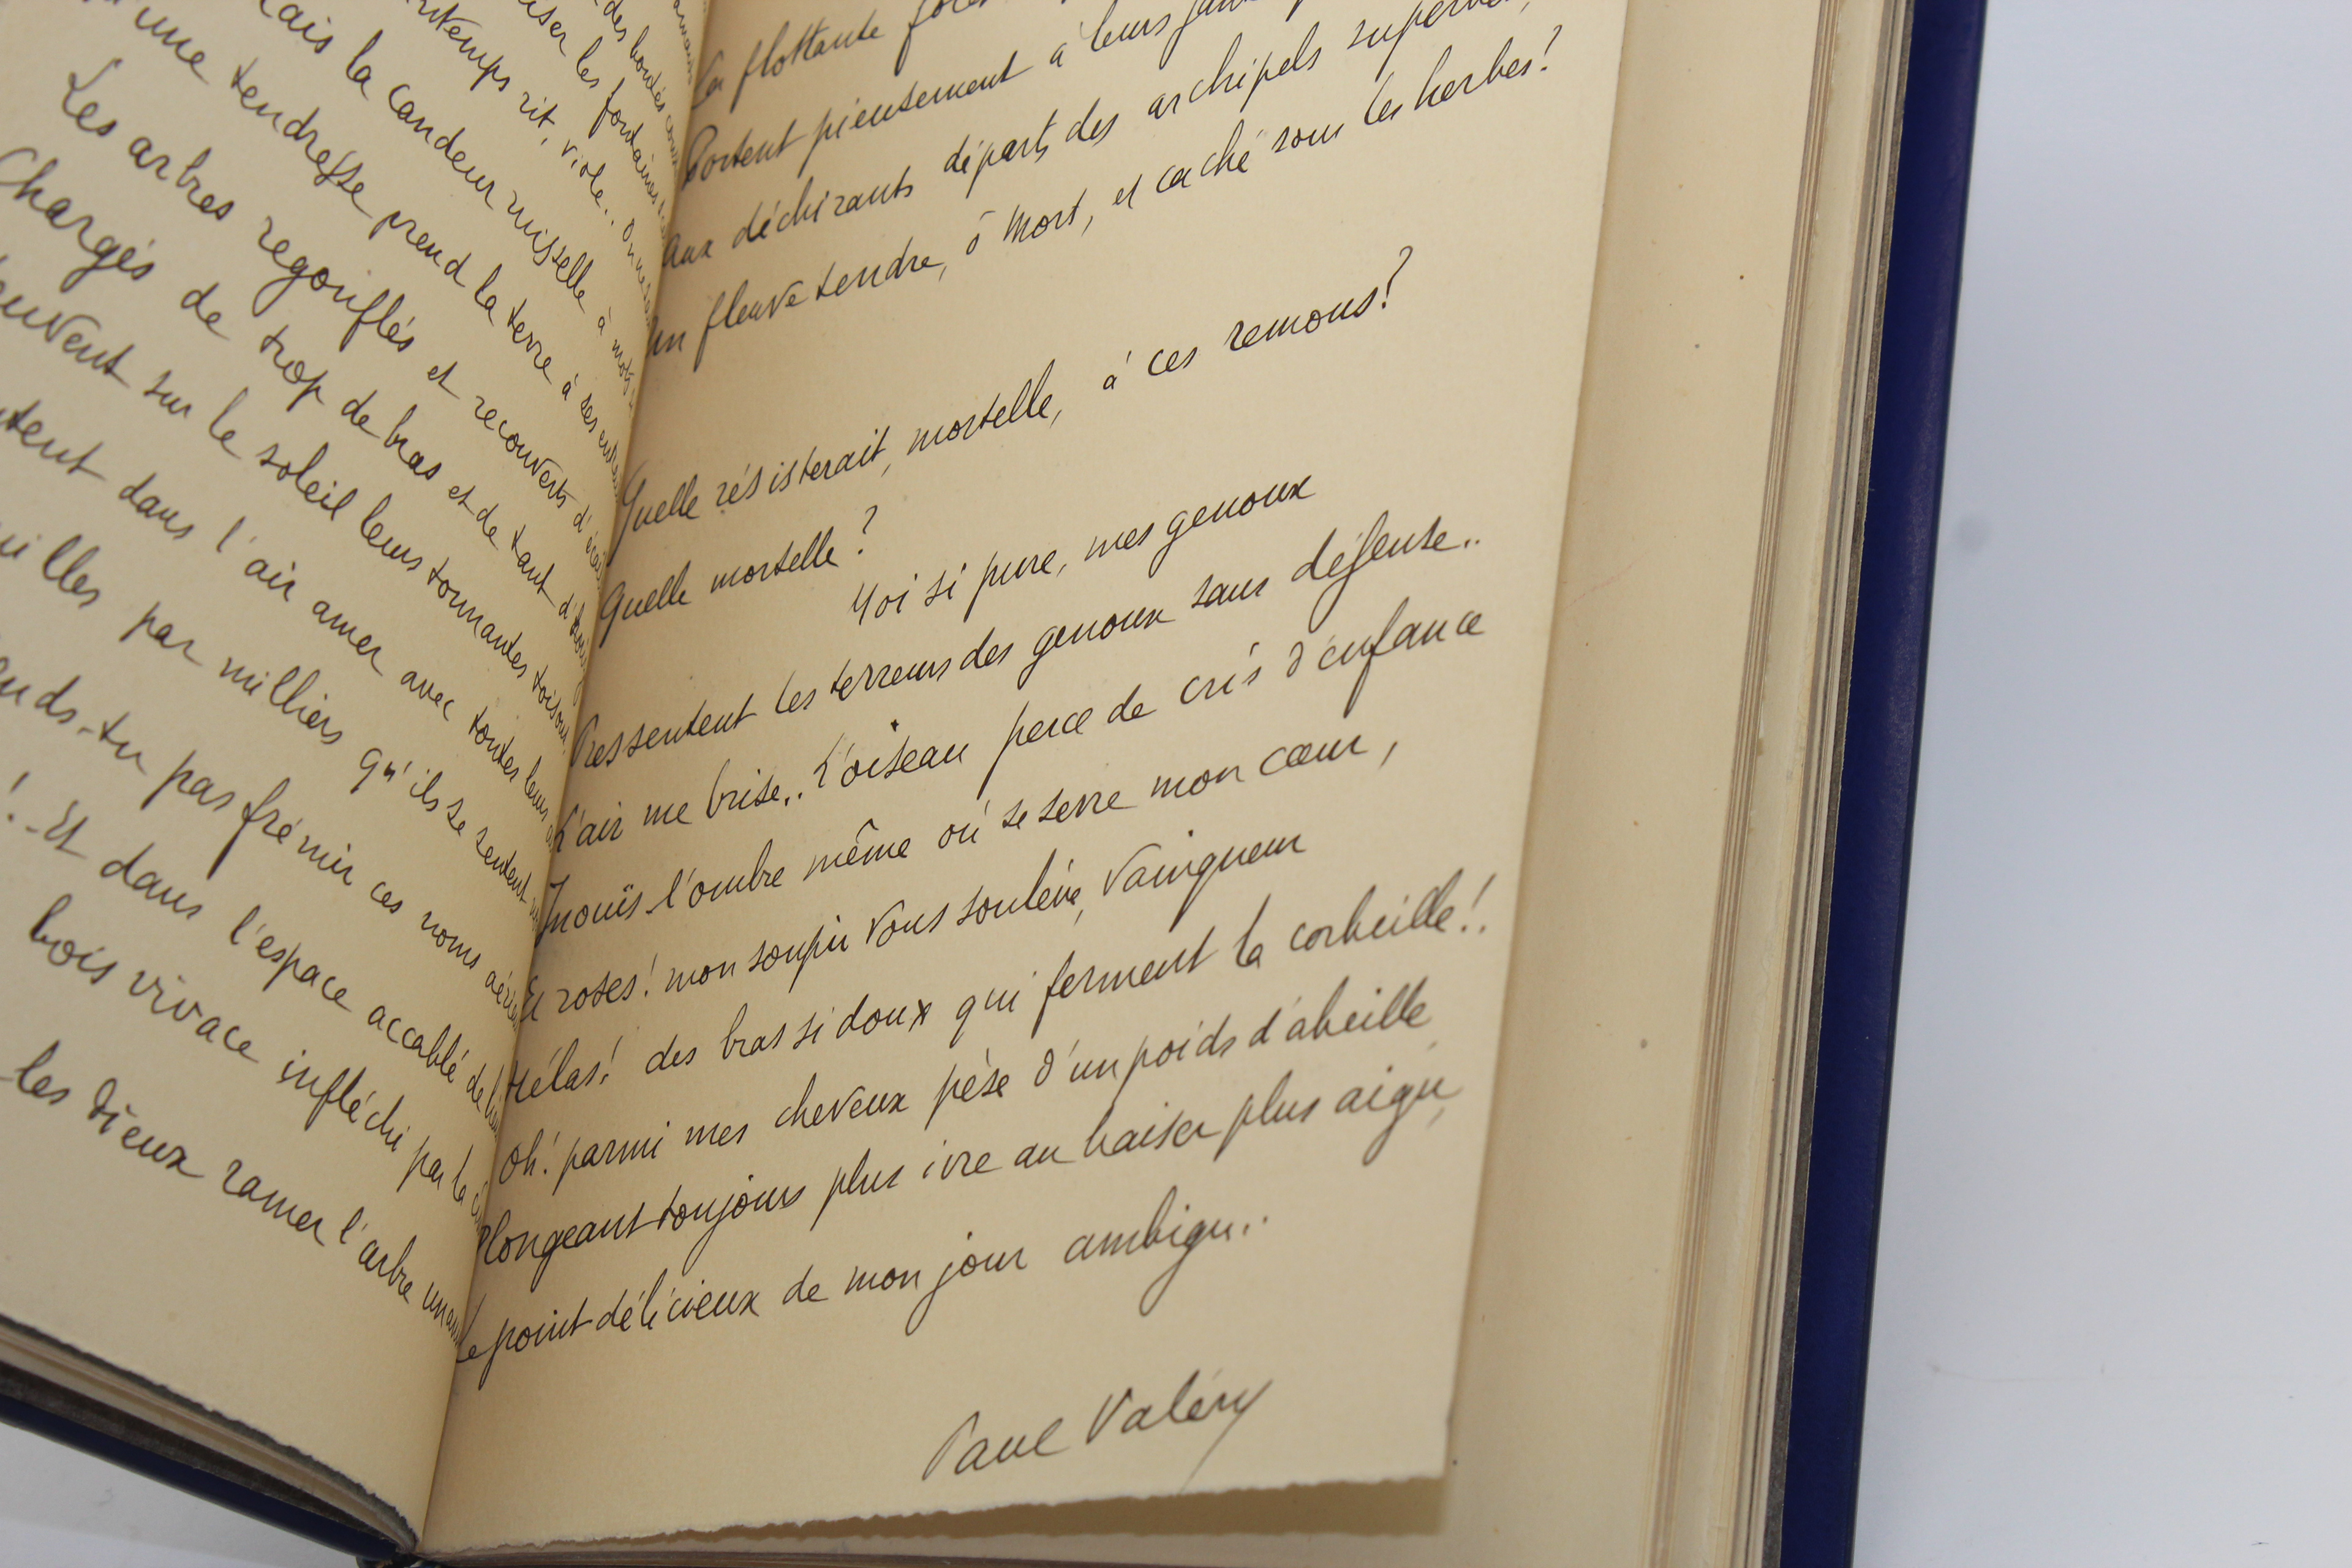 des bontés
les fontaines
rit, viole..
mais la candeur ruisselle à
une tendresse prend la terre à ses
Les arbres regonflés et recouverts
Chargés de trop de bras et de tant
sur le soleil leurs tonnantes toisons
dans l'air amer avec toutes leurs
par milliers qu'ils se sentent
-tu pas frémir ces noms
! - Et dans l'espace accablé de
bois vivace infléchi par la
les Dieux ramer l'arbre
La flottante
Portent pieusement à leurs
Aux déchirants départs des archipels
Un fleuve tendre, ô Mort, et caché sous les herbes?
Quelle résisterait, mortelle, à ces remous?
Quelle mortelle?
Moi si pure, mes genoux
Pressentent les terreurs des genoux sans défense..
L'air me brise.. L'oiseau perce de cris d'enfance
Inouïs - l'ombre même où se serre mon cœur,
Et roses! mon soupir vous soulève, vainqueur
Hélas! des bras si doux qui ferment la corbeille!.
Oh! parmi mes cheveux pèse d'un poids d'abeille
Plongeant toujours plus ivre au baiser plus aigu,
Le point délicieux de mon jour ambigu..
Paul Valéry